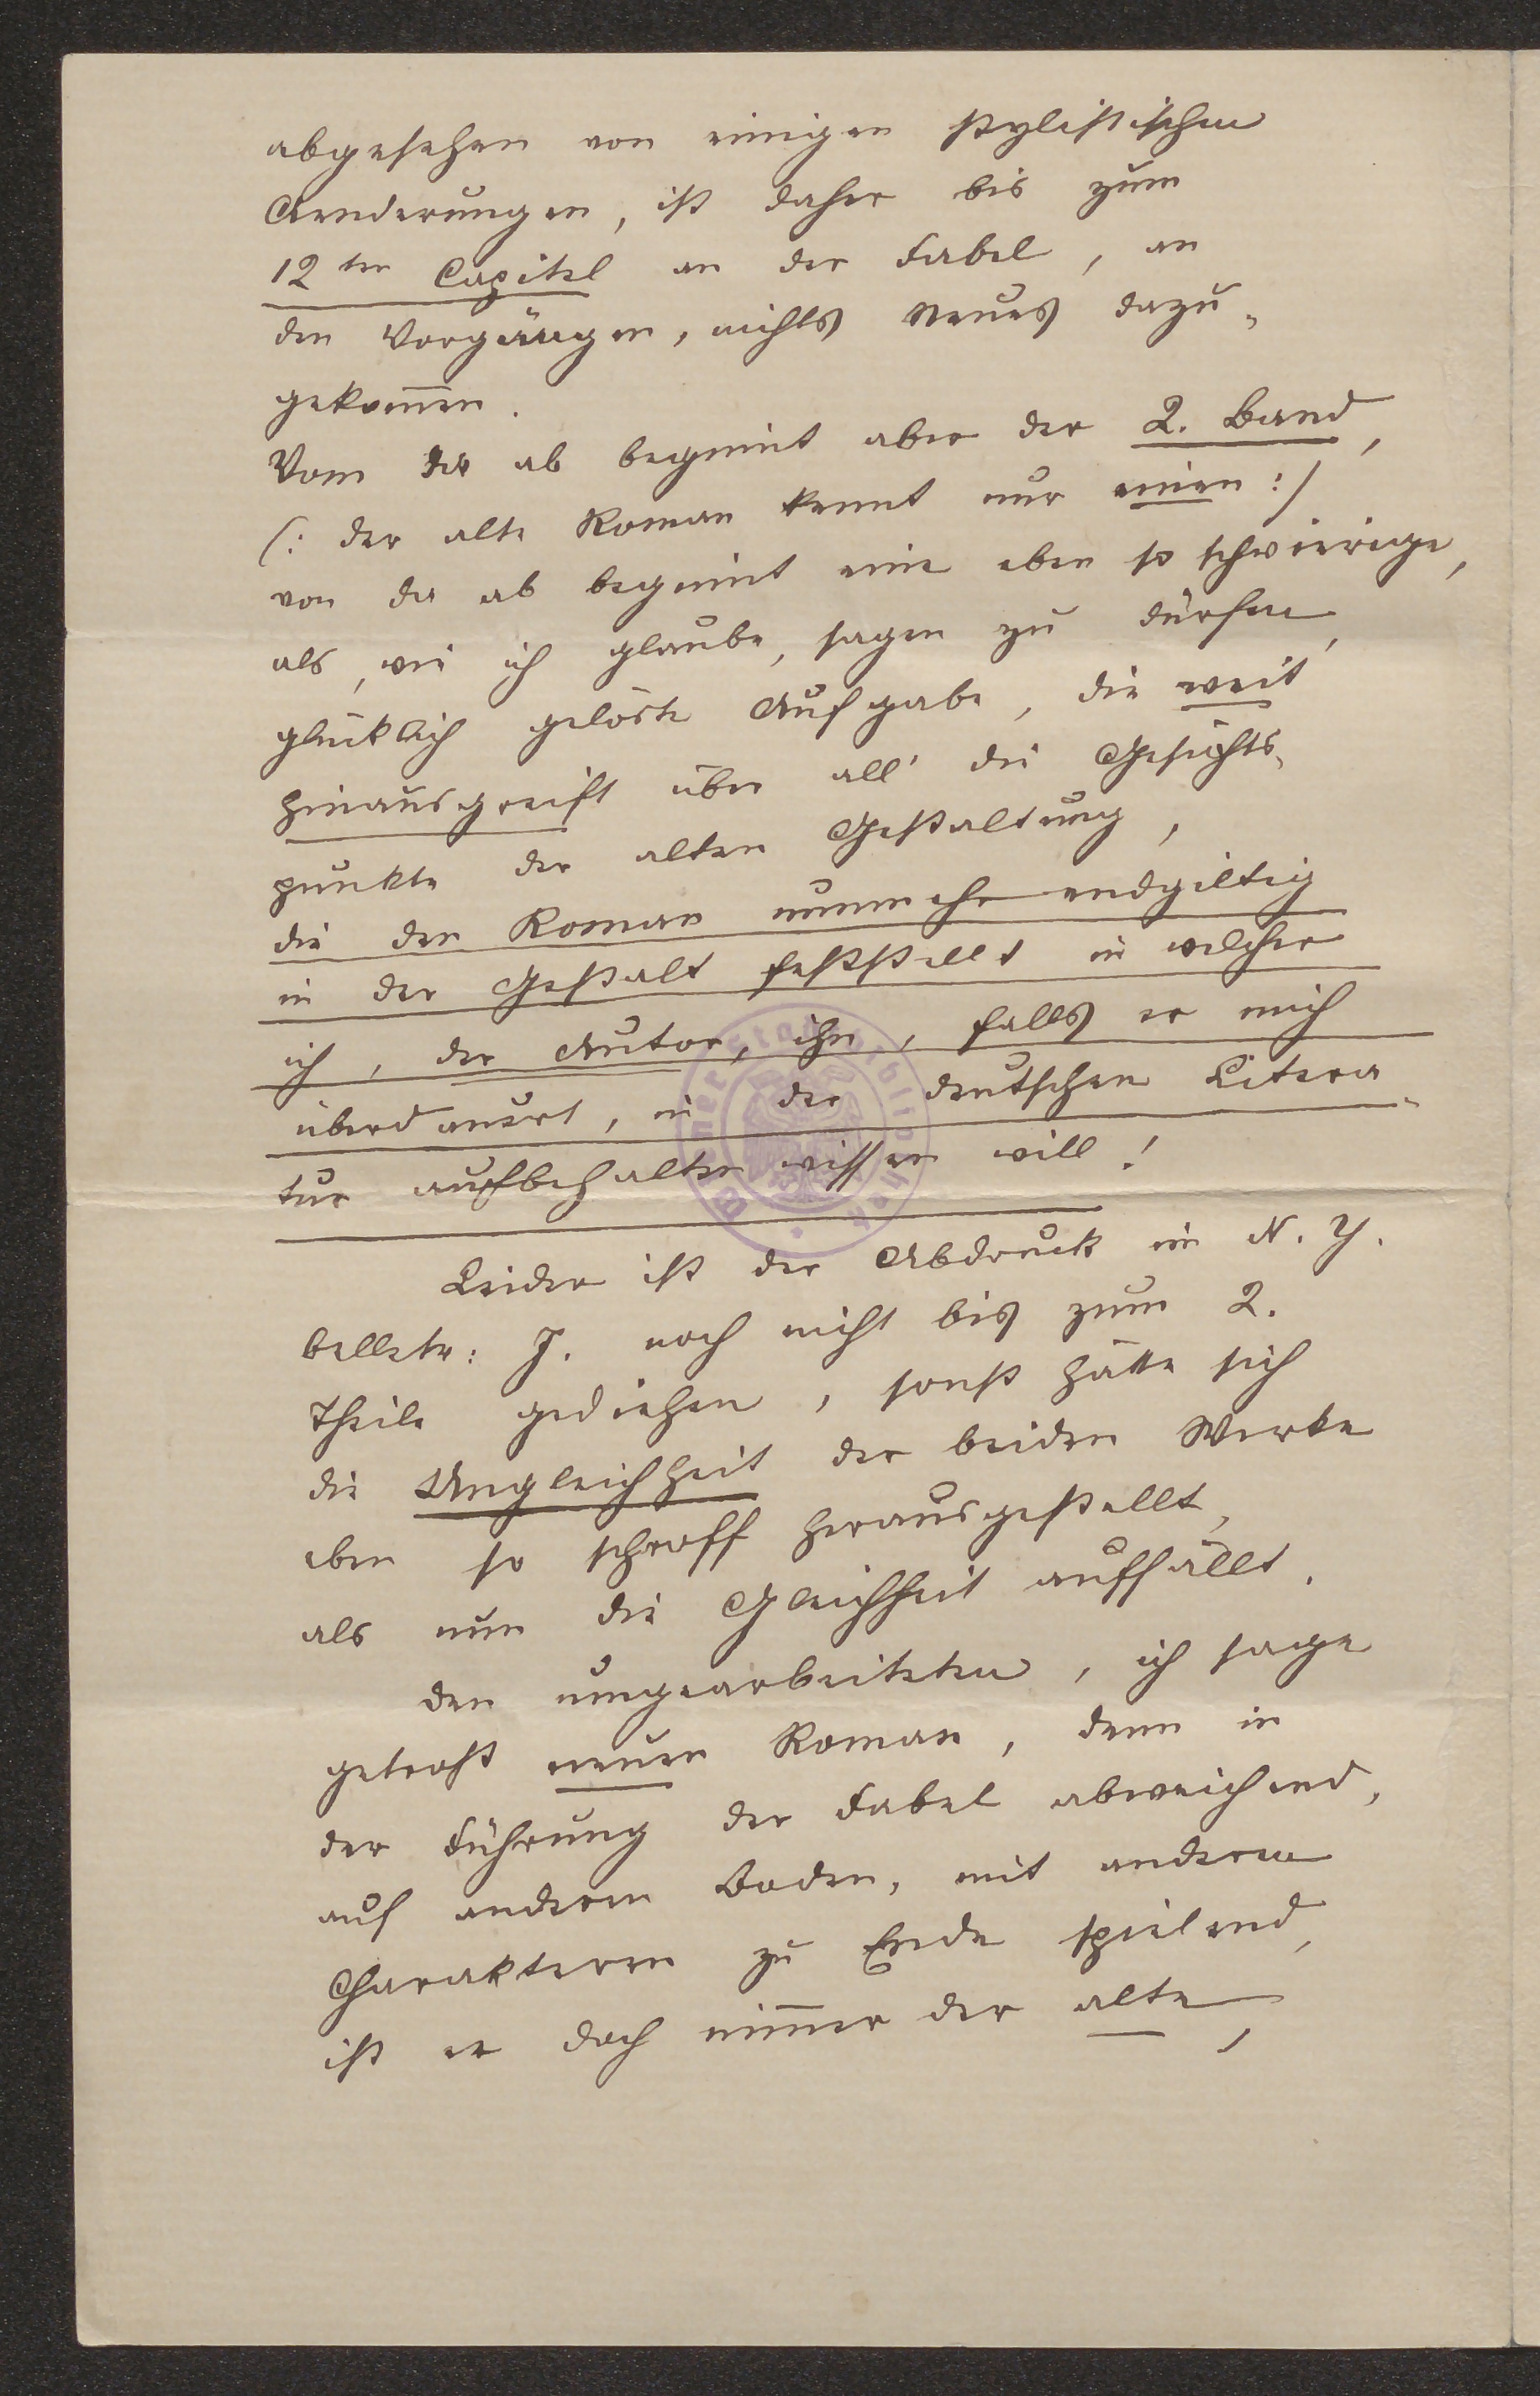 abgesehen von einigen stylistischen
Aenderungen, ist daher bis zum
12ten Capitel an der Fabel, an
den Vorgängen, nichts Neues dazu-
gekom̅en.
Von da ab beginnt aber der 2. Band,
(: der alte Roman kennt nur einen :)
von da ab beginnt eine eben so schwierige,
als, wie ich glaube, sagen zu dürfen,
glücklich gelöste Aufgabe, die weit
hinausgreift über all' die Gesichts-
punkte der alten Gestaltung,
die den Roman nunmehr endgiltig
in der Gestalt feststellt in welcher
ich, der Autor, ihn, falls er mich
überdauert, in der deutschen Litera-
tur aufbehalten wissen will!
Leider ist der Abdruck im N. Y.
belletr: J. noch nicht bis zum 2.
Theile gediehen, sonst hätte sich
die Ungleichheit der beiden Werke
eben so schroff herausgestellt,
als nun die Gleichheit auffällt.
Den umgearbeiteten, ich sage
getrost neuen Roman, denn in
der Führung der Fabel abweichend,
auf anderem Boden, mit anderen
Charakteren zu Ende spielend,
ist er doch nim̅er der alte,
Wiener Stadtbibliothek